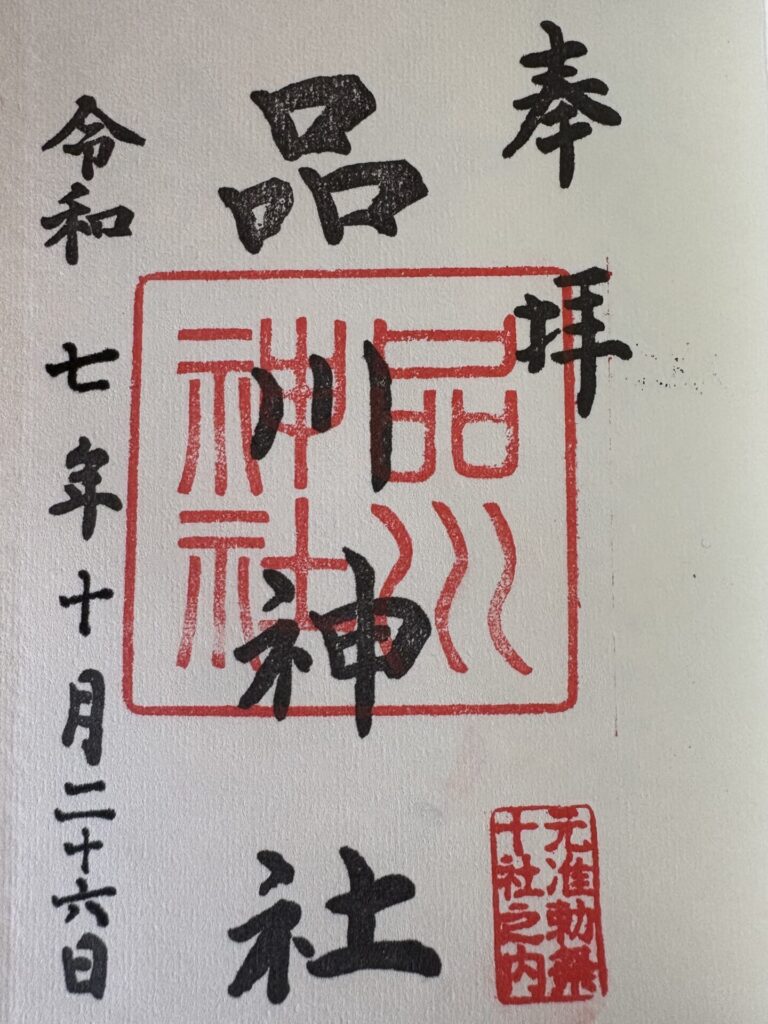 奉拝
品川神社
品川
神社
元准勅祭
十社之内
令和七年十月二十六日